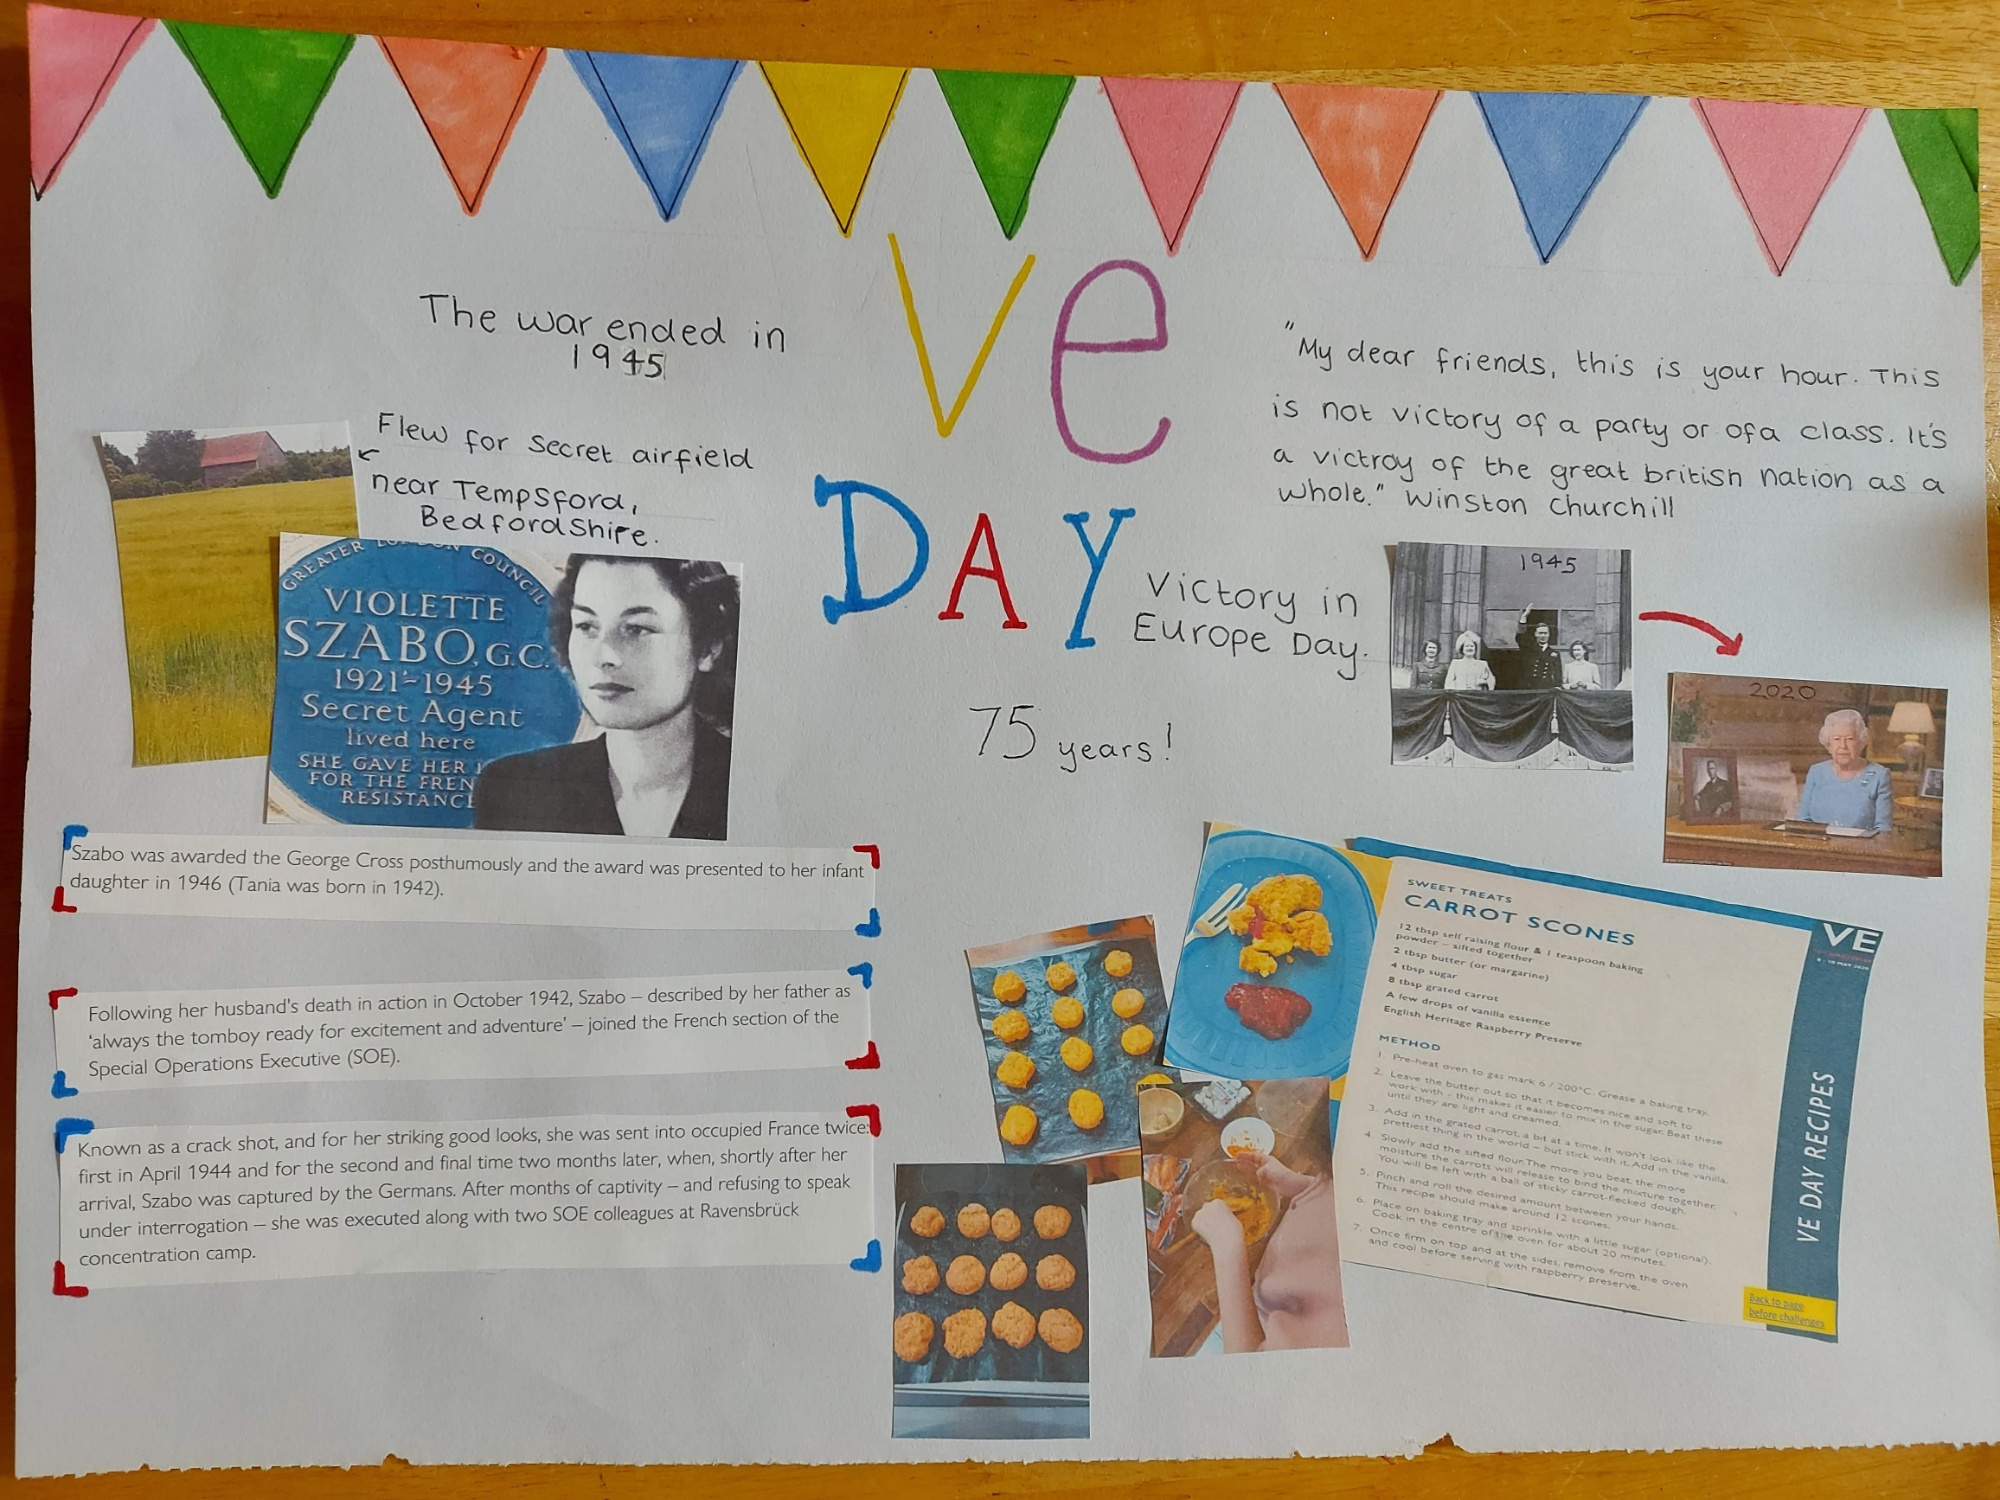 The war ended in
1945
Ve
DAY
"My dear friends, this is your hour. This
is not victory of a party or of a class. It's
a victroy of the great british nation as a
whole." Winston Churchill
Flew for secret airfield
near Tempsford,
Bedfordshire.
Victory in
Europe Day.
75 years!
1945
2020
GREATER LONDON COUNCIL
VIOLETTE
SZABO, G.C.
1921-1945
Secret Agent
lived here
SHE GAVE HER
FOR THE FREN
RESISTANCE
Szabo was awarded the George Cross posthumously and the award was presented to her infant
daughter in 1946 (Tania was born in 1942).
Following her husband's death in action in October 1942, Szabo – described by her father as
'always the tomboy ready for excitement and adventure' – joined the French section of the
Special Operations Executive (SOE).
Known as a crack shot, and for her striking good looks, she was sent into occupied France twice:
first in April 1944 and for the second and final time two months later, when, shortly after her
arrival, Szabo was captured by the Germans. After months of captivity – and refusing to speak
under interrogation – she was executed along with two SOE colleagues at Ravensbrück
concentration camp.
SWEET TREATS
CARROT SCONES
12 tbsp self raising flour & 1 teaspoon baking
powder – sifted together
2 tbsp butter (or margarine)
4 tbsp sugar
8 tbsp grated carrot
A few drops of vanilla essence
English Heritage Raspberry Preserve
METHOD
1. Pre-heat oven to gas mark 6 / 200°C. Grease a baking tray.
2. Leave the butter out so that it becomes nice and soft to
work with - this makes it easier to mix in the sugar. Beat these
until they are light and creamed.
3. Add in the grated carrot, a bit at a time. It won't look like the
prettiest thing in the world – but stick with it. Add in the vanilla.
4. Slowly add the sifted flour. The more you beat, the more
moisture the carrots will release to bind the mixture together.
You will be left with a ball of sticky carrot-flecked dough.
5. Pinch and roll the desired amount between your hands.
This recipe should make around 12 scones.
6. Place on baking tray and sprinkle with a little sugar (optional).
Cook in the centre of the oven for about 20 minutes.
7. Once firm on top and at the sides, remove from the oven
and cool before serving with raspberry preserve.
VE
VE DAY RECIPES
Back to page
before challenges